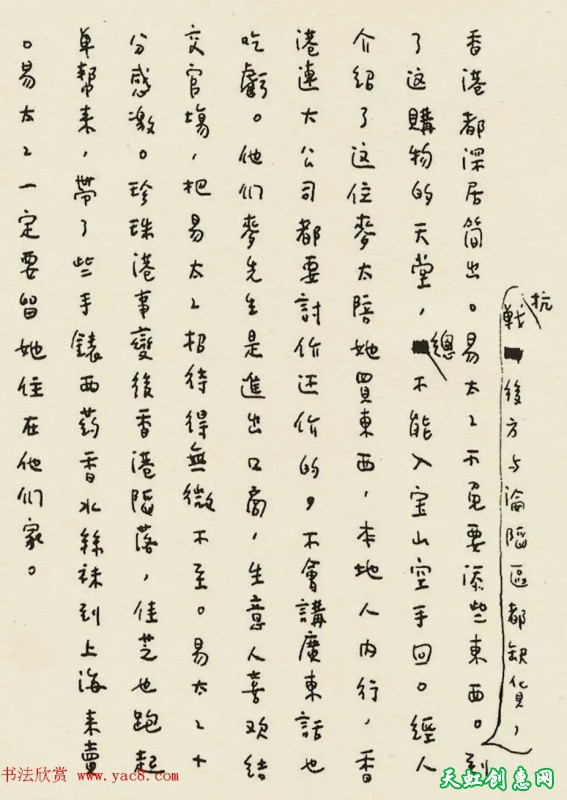 抗
戰後方与淪陷區都缺貨，
香港都深居简出。易太々不免要添些東西。到
了这購物的天堂，總不能入宝山空手回。經人
介紹了这位麥太陪她買東西，本地人内行，香
港連大公司都要討价还价的，不會講廣東話也
吃虧。他们麥先生是進出口商，生意人喜欢结
交官場，把易太々招待得無微不至。易太々十
分感激。珍珠港事變後香港陷落，佳芝也跑起
单幫来，帶了些手錶西药香水絲袜到上海来賣
。易太々一定要留她住在他们家。
书法欣赏 www.yac8.com
天虹创意网